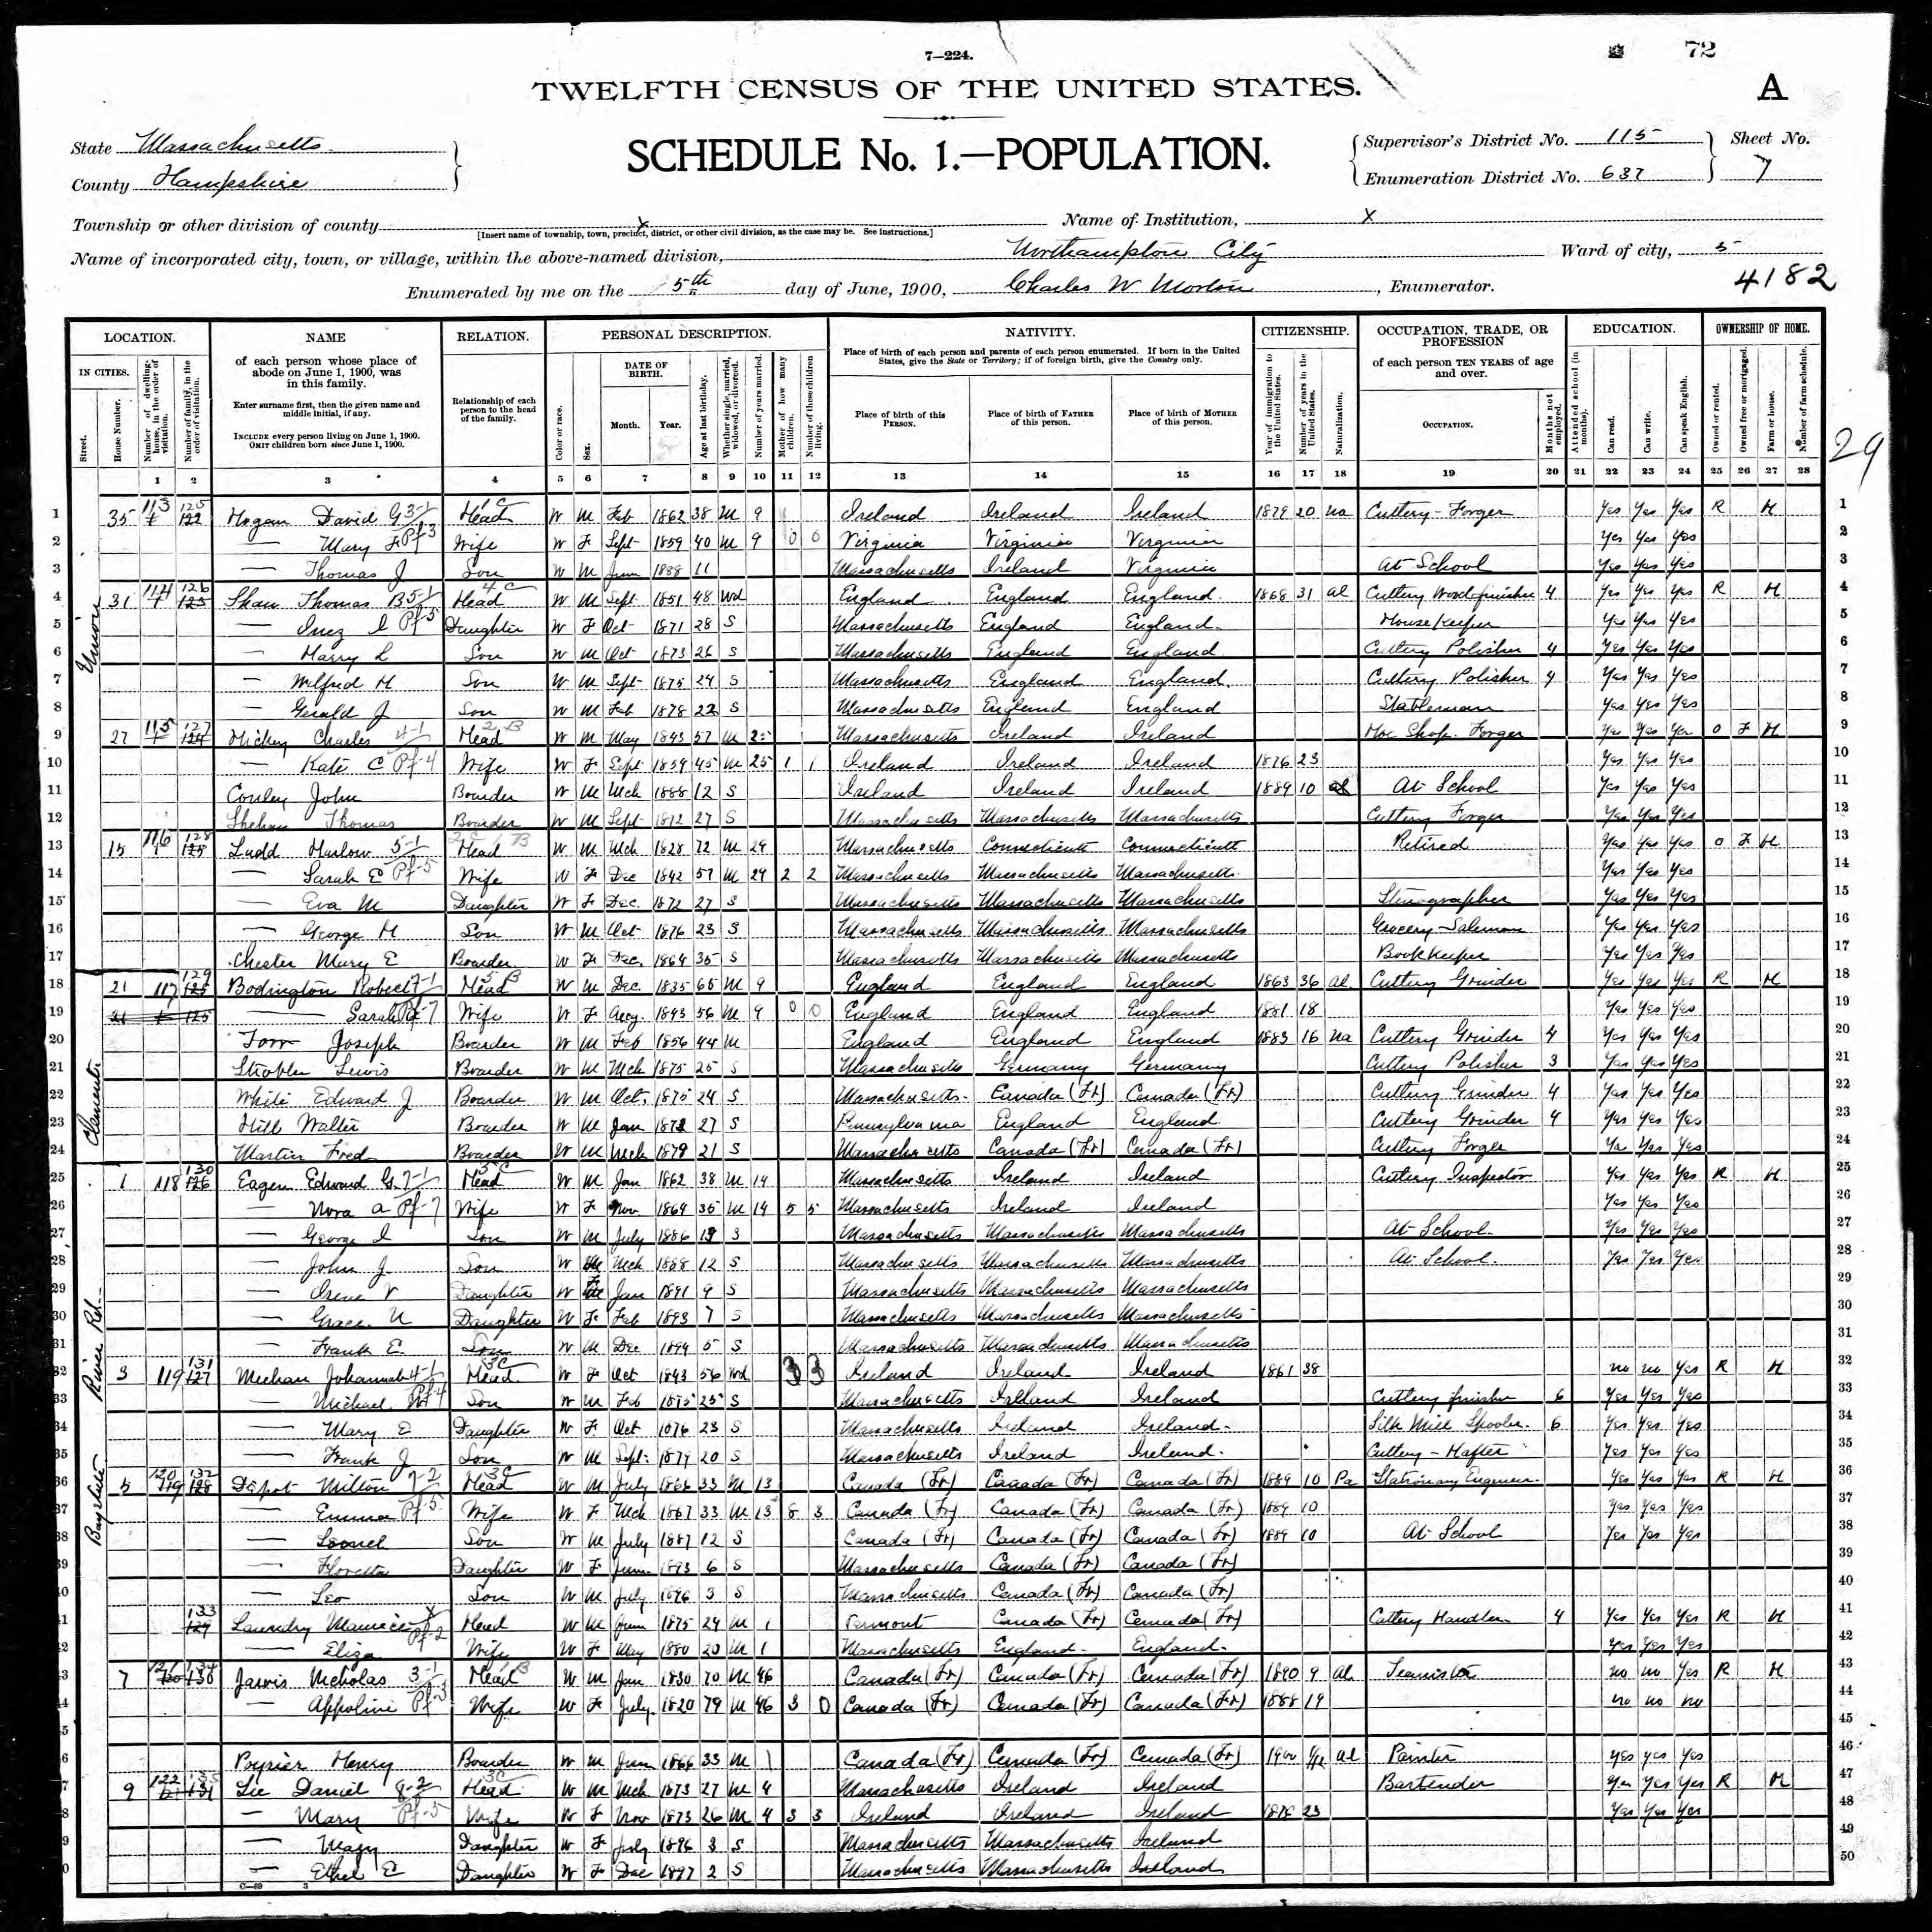 7—224.
72
TWELFTH CENSUS OF THE UNITED STATES.
A
State Massachusetts
County Hampshire
SCHEDULE No. 1.—POPULATION.
Supervisor's District No. 115
Enumeration District No. 637
Sheet No.
7
Township or other division of county x
[Insert name of township, town, precinct, district, or other civil division, as the case may be. See instructions.]
Name of Institution, x
Name of incorporated city, town, or village, within the above-named division, Northampton City
Ward of city, 5
Enumerated by me on the 5th day of June, 1900, Charles W Morton, Enumerator.
4182
29
LOCATION. NAME RELATION. PERSONAL DESCRIPTION. NATIVITY. CITIZENSHIP. OCCUPATION, TRADE, OR PROFESSION EDUCATION. OWNERSHIP OF HOME.
IN CITIES.
Street.
House Number.
Number of dwelling-house, in the order of visitation.
Number of family, in the order of visitation.
of each person whose place of abode on June 1, 1900, was in this family.
Enter surname first, then the given name and middle initial, if any.
INCLUDE every person living on June 1, 1900.
OMIT children born since June 1, 1900.
Relationship of each person to the head of the family.
Color or race.
Sex.
DATE OF BIRTH.
Month. Year.
Age at last birthday.
Whether single, married, widowed, or divorced.
Number of years married.
Mother of how many children.
Number of these children living.
Place of birth of each person and parents of each person enumerated. If born in the United States, give the State or Territory; if of foreign birth, give the Country only.
Place of birth of this PERSON.
Place of birth of FATHER of this person.
Place of birth of MOTHER of this person.
Year of immigration to the United States.
Number of years in the United States.
Naturalization.
of each person TEN YEARS of age and over.
OCCUPATION.
Months not employed.
Attended school (in months).
Can read.
Can write.
Can speak English.
Owned or rented.
Owned free or mortgaged.
Farm or house.
Number of farm schedule.
1 2 3 4 5 6 7 8 9 10 11 12 13 14 15 16 17 18 19 20 21 22 23 24 25 26 27 28
Union
1 35 113 125 Hogan David G Head W M Feb 1862 38 M 9 Ireland Ireland Ireland 1879 20 Na Cutlery - Forger Yes Yes Yes R H 1
2 — Mary F Wife W F Sept 1859 40 M 9 0 0 Virginia Virginia Virginia Yes Yes Yes 2
3 — Thomas J Son W M June 1888 11 Massachusetts Ireland Virginia At School Yes Yes Yes 3
4 31 114 126 Shaw Thomas B Head W M Sept 1851 48 Wd England England England 1868 31 Al Cutlery Woodfinisher 4 Yes Yes Yes R H 4
5 — Inez Daughter W F Oct 1871 28 S Massachusetts England England House Keeper Yes Yes Yes 5
6 — Harry L Son W M Oct 1873 26 S Massachusetts England England Cutlery Polisher 4 Yes Yes Yes 6
7 — Wilfred H Son W M Sept 1875 24 S Massachusetts England England Cutlery Polisher 4 Yes Yes Yes 7
8 — Gerald J Son W M Feb 1878 22 S Massachusetts England England Stableman Yes Yes Yes 8
9 27 115 127 Hickey Charles Head W M May 1843 57 M 25 Massachusetts Ireland Ireland Hoe Shop Forger Yes Yes Yes O F H 9
10 — Kate C Wife W F Sept 45 M 25 1 1 Ireland Ireland Ireland 1876 23 Yes Yes Yes 10
11 Conley John Boarder W M Mch 1888 12 S Ireland Ireland Ireland 1889 10 At School Yes Yes Yes 11
12 Shehan Thomas Boarder W M Sept 1872 27 S Massachusetts Massachusetts Massachusetts Cutlery Forger Yes Yes Yes 12
13 15 116 128 Ludd Harlow Head W M Mch 1828 72 M 29 Massachusetts Connecticutt Connecticutt Retired Yes Yes Yes O F H 13
14 — Sarah E Wife W F Dec 1842 57 M 29 2 2 Massachusetts Massachusetts Massachusetts Yes Yes Yes 14
15 — Eva M Daughter W F Dec. 1872 27 S Massachusetts Massachusetts Massachusetts Stenographer Yes Yes Yes 15
16 — George H Son W M Oct 1876 23 S Massachusetts Massachusetts Massachusetts Grocery Salesman Yes Yes Yes 16
17 Chester Mary E Boarder W F Dec. 1864 35 S Massachusetts Massachusetts Massachusetts Book Keeper Yes Yes Yes 17
Clement
18 21 117 129 Bodington Robert Head W M Dec. 1835 65 M 9 England England England 1863 36 Al Cutlery Grinder Yes Yes Yes R H 18
19 — Sarah Wife W F Aug. 1843 56 M 9 0 0 England England England 1881 18 Yes Yes Yes 19
20 Torr Joseph Boarder W M Feb 1856 44 M England England England 1883 16 Na Cutlery Grinder 4 Yes Yes Yes 20
21 Strobler Lewis Boarder W M Mch 1875 25 S Massachusetts Germany Germany Cutlery Polisher 3 Yes Yes Yes 21
22 White Edward J Boarder W M Oct. 1875 24 S Massachusetts Canada (Fr) Canada (Fr) Cutlery Grinder 4 Yes Yes Yes 22
23 Hill Walter Boarder W M Jan 27 S Pennsylvania England England Cutlery Grinder 4 Yes Yes Yes 23
24 Martin Fred Boarder W M Mch 1879 21 S Massachusetts Canada (Fr) Canada (Fr) Cutlery Forger Yes Yes Yes 24
Baystate River Rd.
25 1 118 130 Eagen Edward G. Head W M Jan 1862 38 M 14 Massachusetts Ireland Ireland Cutlery Inspector Yes Yes Yes R H 25
26 — Nora A Wife W F Nov 1864 35 M 14 5 5 Massachusetts Ireland Ireland Yes Yes Yes 26
27 — George Son W M July 1886 13 S Massachusetts Massachusetts Massachusetts At School Yes Yes Yes 27
28 — John J Son W M Mch 1888 12 S Massachusetts Massachusetts Massachusetts At School Yes Yes Yes 28
29 — Irene V Daughter W F Jan 1891 9 S Massachusetts Massachusetts Massachusetts 29
30 — Grace Daughter W F Feb 1893 7 S Massachusetts Massachusetts Massachusetts 30
31 — Frank E. Son W M Dec 1894 5 S Massachusetts Massachusetts Massachusetts 31
32 3 119 131 Meehan Johannah Head W F Oct 1843 56 Wd 3 3 Ireland Ireland Ireland 1861 38 no no Yes R H 32
33 — Michael Son W M Feb 1875 25 S Massachusetts Ireland Ireland Cutlery finisher 6 Yes Yes Yes 33
34 — Mary E Daughter W F Oct 1876 23 S Massachusetts Ireland Ireland Silk Mill Spooler 6 Yes Yes Yes 34
35 — Frank J Son W M Sept. 1879 20 S Massachusetts Ireland Ireland Cutlery - Hafter Yes Yes Yes 35
36 5 120 132 Depot Milton Head W M July 1866 33 M 13 Canada (Fr) Canada (Fr) Canada (Fr) 1889 10 Pa Stationary Engineer Yes Yes Yes R H 36
37 — Emma Wife W F Mch 1867 33 M 13 8 3 Canada (Fr) Canada (Fr) Canada (Fr) 1889 10 Yes Yes Yes 37
38 — Leonel Son W M July 1887 12 S Canada (Fr) Canada (Fr) Canada (Fr) 1889 10 At School Yes Yes Yes 38
39 — Floretta Daughter W F June 1893 6 S Massachusetts Canada (Fr) Canada (Fr) 39
40 — Leo Son W M July 1896 3 S Massachusetts Canada (Fr) Canada (Fr) 40
41 133 Laundry Maurice Head W M June 1875 24 M 1 Vermont Canada (Fr) Canada (Fr) Cutlery Handler 4 Yes Yes Yes R H 41
42 — Eliza Wife W F May 1880 20 M 1 Massachusetts England England Yes Yes Yes 42
43 7 121 134 Jarvis Nicholas Head W M Jan 1830 70 M 46 Canada (Fr) Canada (Fr) Canada (Fr) 1890 9 Al Teamster no no Yes R H 43
44 — Appoline Wife W F July 1820 79 M 46 3 0 Canada (Fr) Canada (Fr) Canada (Fr) 1888 19 no no no 44
45
46 Henry Boarder W M June 1866 33 M 1 Canada (Fr) Canada (Fr) Canada (Fr) 1900 Al Painter Yes Yes Yes 46
47 9 122 135 Lee Daniel Head W M Mch 1873 27 M 4 Massachusetts Ireland Ireland Bartender Yes Yes Yes R H 47
48 — Mary Wife W F Nov 1873 26 M 4 3 3 Ireland Ireland Ireland 23 Yes Yes Yes 48
49 — Mary Daughter W F July 1896 3 S Massachusetts Massachusetts Ireland 49
50 — Ethel E Daughter W F Dec 1897 2 S Massachusetts Massachusetts Ireland 50